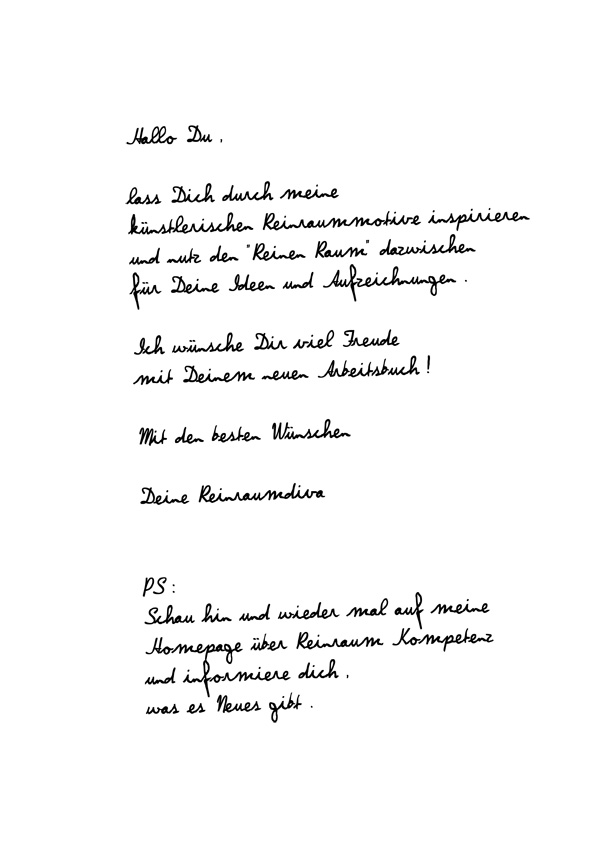 Hallo Du,
lass Dich durch meine
künstlerischen Reinraummotive inspirieren
und nutz den "Reinen Raum" dazwischen
für Deine Ideen und Aufzeichnungen.
Ich wünsche Dir viel Freude
mit Deinem neuen Arbeitsbuch!
Mit den besten Wünschen
Deine Reinraumdiva
PS:
Schau hin und wieder mal auf meine
Homepage über Reinraum Kompetenz
und informiere dich,
was es Neues gibt.